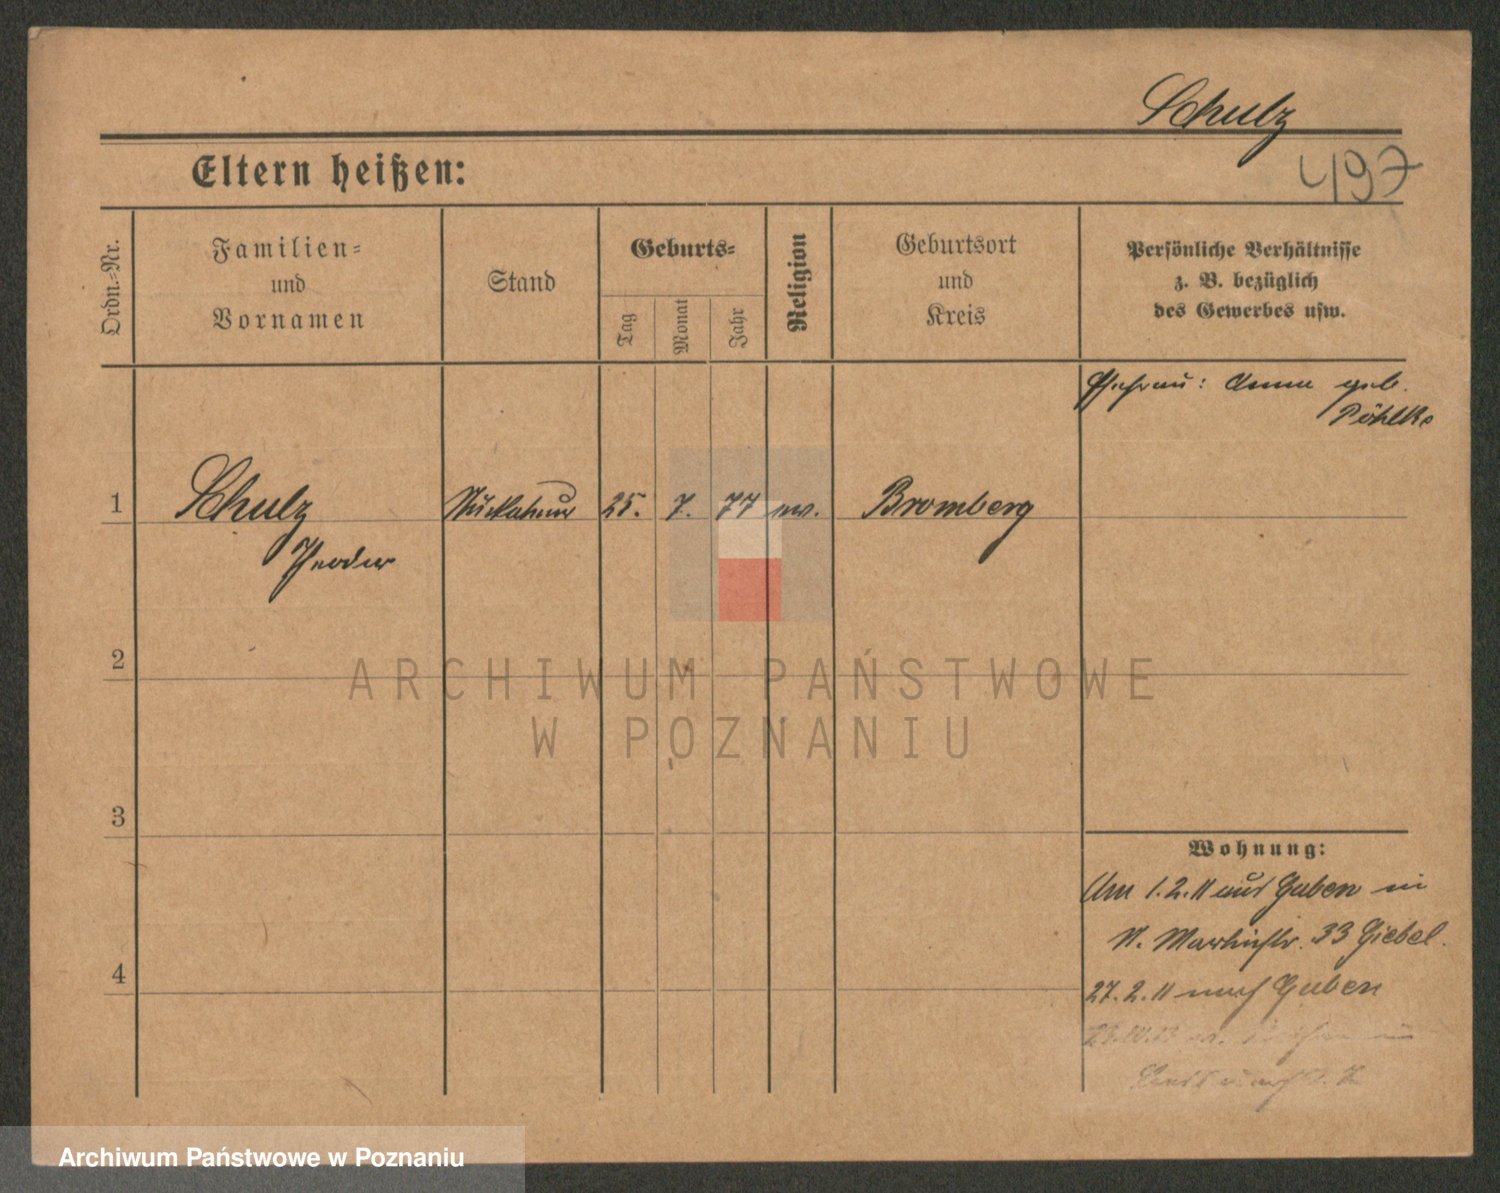 Schulz
Eltern heißen:
497
Ordn.-Nr.
Familien-
und
Vornamen
Stand
Geburts-
Tag
Monat
Jahr
Religion
Geburtsort
und
Kreis
Persönliche Verhältnisse
z. B. bezüglich
des Gewerbes usw.
Ehefrau: Anna geb.
Pöhlke
1
Schulz
Stuckateur
25.
7.
77
ev.
Bromberg
Theodor
2
ARCHIWUM PAŃSTWOWE
W POZNANIU
3
Wohnung:
Am 1.2.11 aus Guben in
St. Martinstr. 33 Giebel.
4
27.2.11 nach Guben
Archiwum Państwowe w Poznaniu